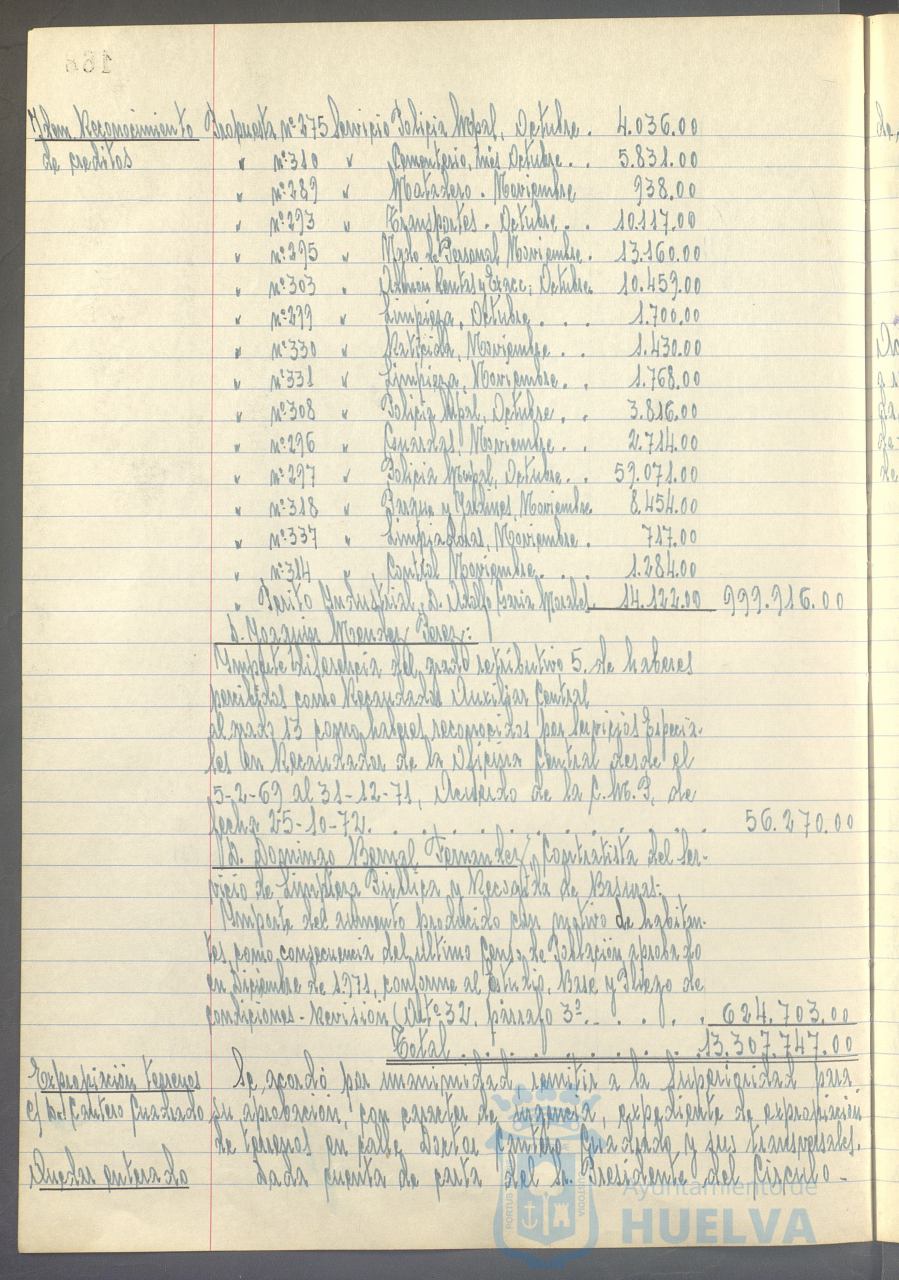 168
Idem Reconocimiento
de creditos
Propuesta nº 275 Servicio Policia Mpal, Octubre . 4.036.00
" nº 310 " Cementerio, mes Octubre . . 5.831.00
" nº 289 " Matadero . Noviembre 938.00
" nº 293 " Transportes . Octubre . . 10.117.00
" nº 295 " Ngdo de Personal Noviembre . 13.160.00
" nº 303 " Admón Rentas y Exacc; Octubre. 10.459.00
" nº 299 " Limpieza, Octubre . . . 1.700.00
" nº 330 " Noviembre . . 1.430.00
" nº 331 " Limpieza, Noviembre . . 1.768.00
" nº 308 " Policia Mpal, Octubre . . 3.816.00
" nº 296 " Guardas, Noviembre 2.714.00
" nº 297 " Policia Mupal, Octubre . . 59.071.00
" nº 318 " Parque y Jardines, Noviembre 8.454.00
" nº 337 " Limpiadoras, Noviembre . 717.00
" nº 314 " Control Noviembre . . . 1.284.00
" Perito Industrial, D. Adolfo 14.122.00 999.916.00
D. Joaquin Mendez Perez:
Importe diferencia del grado retributivo 5. de haberes
percibidos como Recaudador Auxiliar Central
al grado 13 como haberes reconocidos por Servicios Especia-
les en Recaudador de la Oficina Central desde el
5-2-69 al 31-12-71, Acuerdo de la C.M.P, de
fecha 25-10-72. . . . . . . . . . . . 56.270.00
D. Domingo Bernal Fernandez, Contratista del Ser-
vicio de Limpieza Publica y Recogida de Basuras.
Importe del aumento producido con motivo de habitan-
tes como consecuencia del ultimo Censo de Población aprobado
en Diciembre de 1971, conforme al Estudio, Base y Pliego de
condiciones - Revisión (Artº 32, párrafo 3º. . . . . . 624.703.00
Total . . . . . . . . . . . 13.307.747.00
Expropiación terrenos
c/ Dr Cantero Cuadrado
Se acordó por unanimidad remitir a la Superioridad para
su aprobación, con caracter de urgencia, expediente de expropiación
de terrenos en calle Doctor Cantero Cuadrado y sus transversales.
Quedar enterado
Dada cuenta de carta del Sr. Presidente del Circulo -
PORTUS
CUSTODIA
Ayuntamiento de
HUELVA